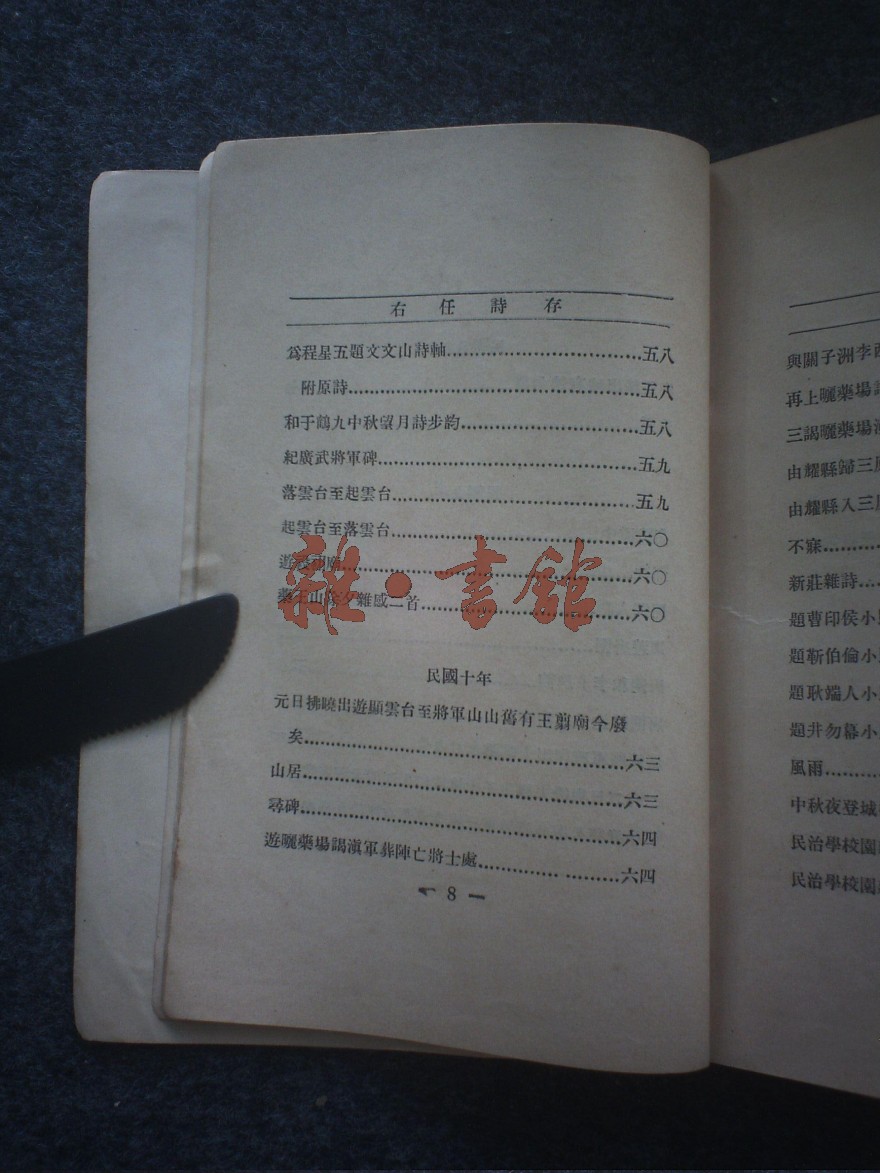 右任詩存
爲程星五題文文山詩軸……五八
附原詩……五八
和于鶴九中秋望月詩步韵……五八
紀廣武將軍碑……五九
落雲台至起雲台……五九
起雲台至落雲台……六〇
遊……廟……六〇
藥王山除夕雜感二首……六〇
雜·書館
民國十年
元日拂曉出遊顯雲台至將軍山山舊有王翦廟今廢
矣……六三
山居……六三
尋碑……六四
遊曬藥場謁滇軍葬陣亡將士處……六四
8
與關子洲李
再上曬藥場
三謁曬藥場
由耀縣歸三
由耀縣入三
不寐……
新莊雜詩……
題曹印侯小
題靳伯倫小
題耿端人小
題井勿幕小
風雨……
中秋夜登城
民治學校園
民治學校園